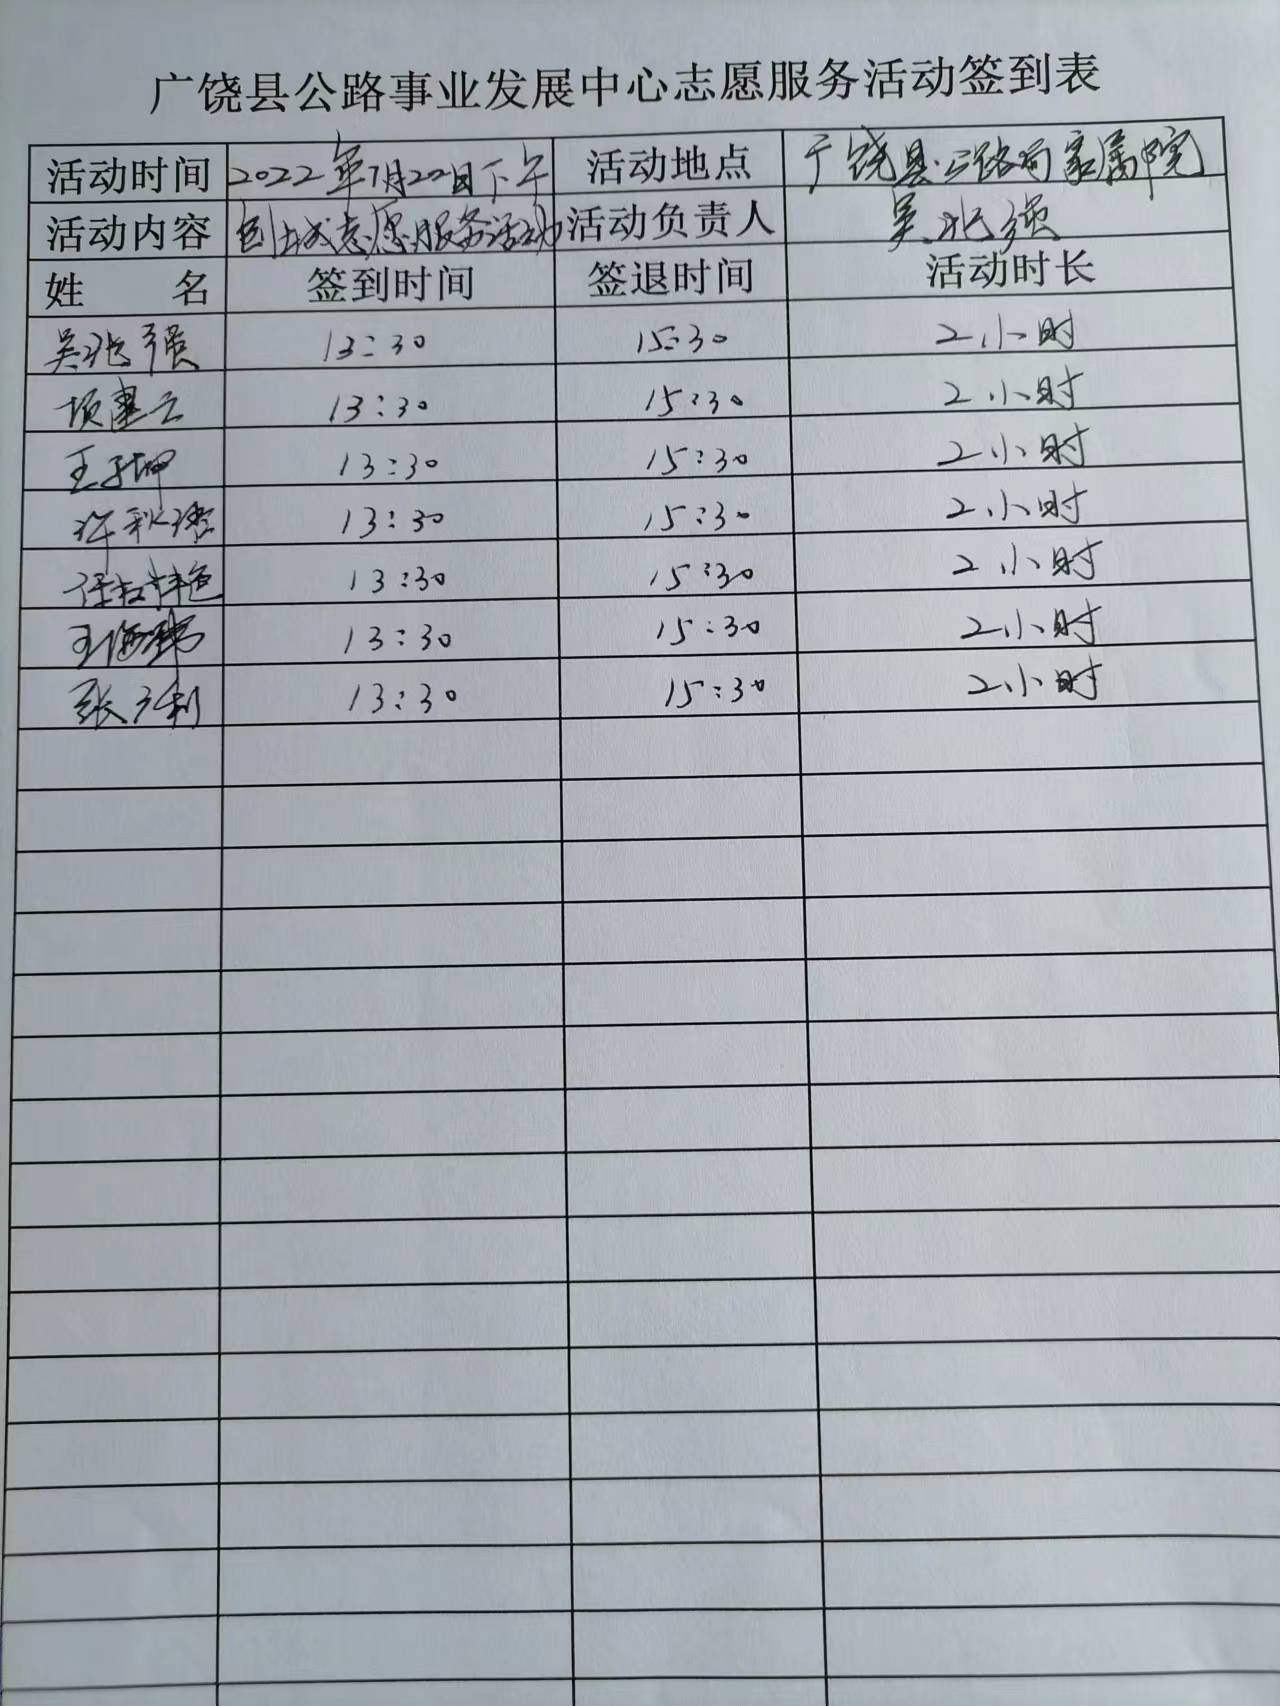 广饶县公路事业发展中心志愿服务活动签到表
活动时间 2022年7月20日下午 活动地点 广饶县公路局家属院
活动内容 创城志愿服务活动 活动负责人 吴兆强
姓 名 签到时间 签退时间 活动时长
吴兆强 13:30 15:30 2小时
项建云 13:30 15:30 2小时
王子坤 13:30 15:30 2小时
许秋 13:30 15:30 2小时
13:30 15:30 2小时
王海 13:30 15:30 2小时
张广利 13:30 15:30 2小时